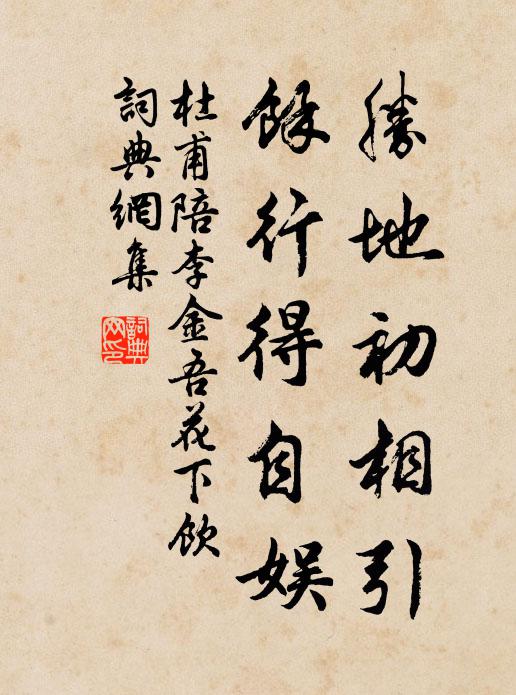 勝地初相引
餘行得自娛
杜甫陪李金吾花下飲
詞典網集
詞典
网印